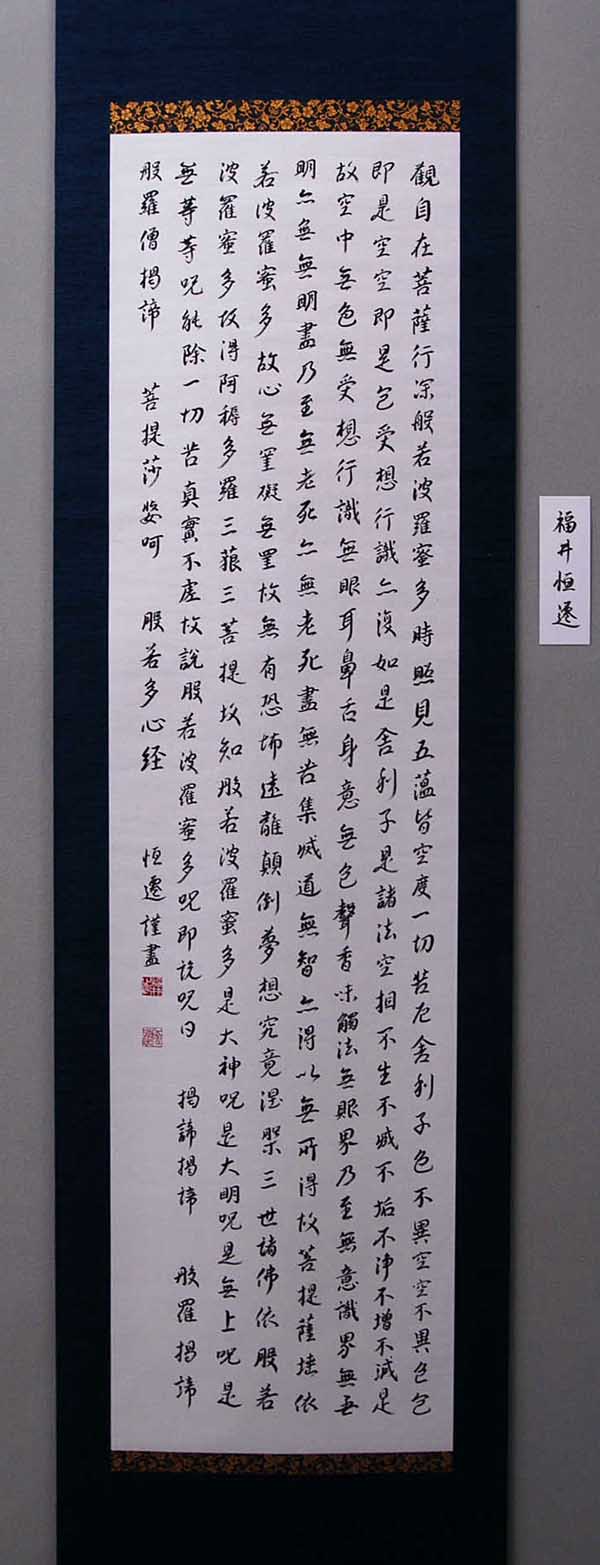 觀自在菩薩行深般若波羅蜜多時照見五蘊皆空度一切苦厄舍利子色不異空空不異色色
即是空空即是色受想行識亦復如是舍利子是諸法空相不生不滅不垢不淨不增不減是
故空中無色無受想行識無眼耳鼻舌身意無色聲香味觸法無眼界乃至無意識界無無
明亦無無明盡乃至無老死亦無老死盡無苦集滅道無智亦得以無所得故菩提薩埵依
若波羅蜜多故心無罣礙無罣故無有恐怖遠離顛倒夢想究竟涅槃三世諸佛依般若
波羅蜜多故得阿耨多羅三藐三菩提故知般若波羅蜜多是大神呪是大明呪是無上呪是
無等等呪能除一切苦真實不虛故說般若波羅蜜多呪即說呪曰 揭諦揭諦 般羅揭諦
般羅僧揭諦 菩提莎婆呵 般若多心経 恒遷謹書
福井恒遷